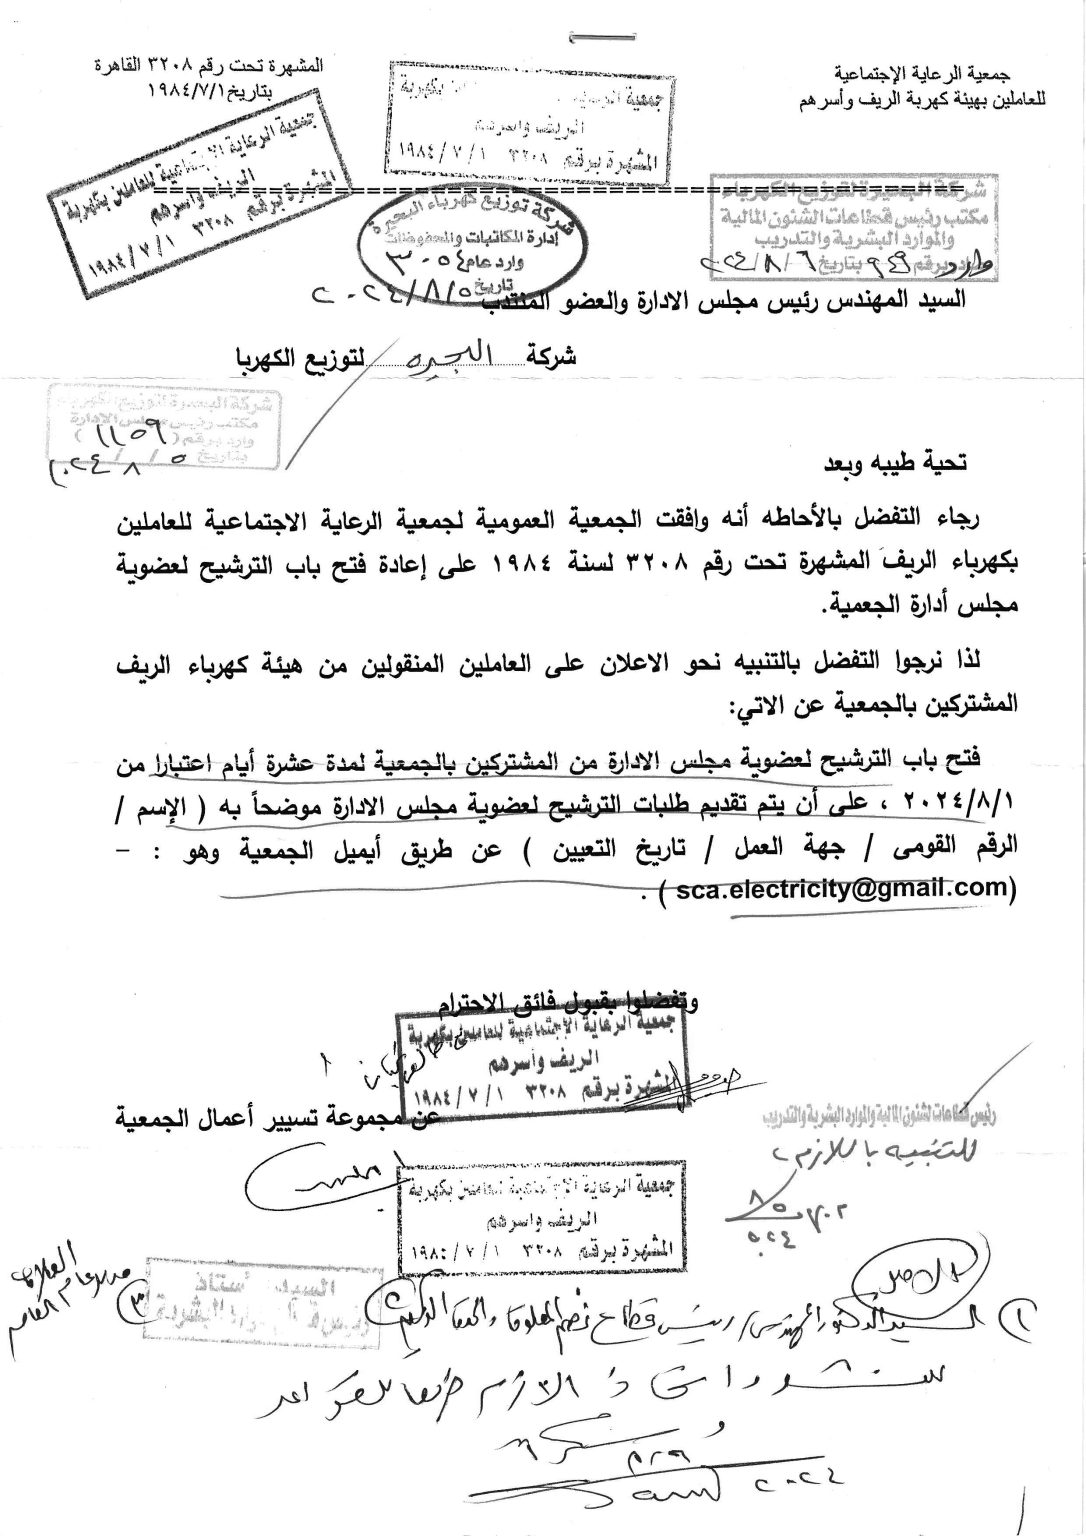 جمعية الرعاية الإجتماعية
للعاملين بهيئة كهربة الريف وأسرهم
المشهرة تحت رقم ٣٢٠٨ القاهرة
بتاريخ ١٩٨٤/٧/١
جمعية الرعاية بكهربة
الريف واسرهم
المشهرة برقم ٣٢٠٨ ١ / ٧ / ١٩٨٤
جمعية الرعاية الإجتماعية للعاملين بكهربة
الريف واسرهم
المشهرة برقم ٣٢٠٨ ١ / ٧ / ١٩٨٤
شركة البحيرة لتوزيع الكهرباء
مكتب رئيس قطاعات الشئون المالية
والموارد البشرية والتدريب
وارد برقم ٩٤٩ بتاريخ ٢٠٢٤/٨/٦
شركة توزيع كهرباء البحيرة
إدارة المكاتبات والمحفوظات
وارد عام ٣٠٥٤
تاريخ ٢٠٢٤/٨/٥
السيد المهندس رئيس مجلس الادارة والعضو المنتدب
شركة البحيره لتوزيع الكهربا
شركة البحيرة لتوزيع الكهرباء
مكتب رئيس مجلس الادارة
وارد برقم ( ١١٥٩ )
بتاريخ ٥ ٨ ٢٠٢٤
تحية طيبه وبعد
رجاء التفضل بالأحاطه أنه وافقت الجمعية العمومية لجمعية الرعاية الاجتماعية للعاملين
بكهرباء الريف المشهرة تحت رقم ٣٢٠٨ لسنة ١٩٨٤ على إعادة فتح باب الترشيح لعضوية
مجلس أدارة الجعمية.
لذا نرجوا التفضل بالتنبيه نحو الاعلان على العاملين المنقولين من هيئة كهرباء الريف
المشتركين بالجمعية عن الاتي:
فتح باب الترشيح لعضوية مجلس الادارة من المشتركين بالجمعية لمدة عشرة أيام اعتبارا من
٢٠٢٤/٨/١ ، على أن يتم تقديم طلبات الترشيح لعضوية مجلس الادارة موضحاً به ( الإسم /
الرقم القومى / جهة العمل / تاريخ التعيين ) عن طريق أيميل الجمعية وهو : –
(sca.electricity@gmail.com ) .
وتفضلوا بقبول فائق الاحترام
جمعية الرعاية الإجتماعية للعاملين بكهربة
الريف واسرهم
المشهرة برقم ٣٢٠٨ ١ / ٧ / ١٩٨٤
عن مجموعة تسيير أعمال الجمعية
رئيس قطاعات لشئون المالية والموارد البشرية والتدريب
للتنبيه باللازم
جمعية الرعاية الإجتماعية للعاملين بكهربة
الريف واسرهم
المشهرة برقم ٣٢٠٨ ١ / ٧ / ١٩٨٤
السيد أستاذ
الموارد البشرية
السيد الدكتور المهندس / رئيس قطاع نظم المعلومات
٢٠٢٤